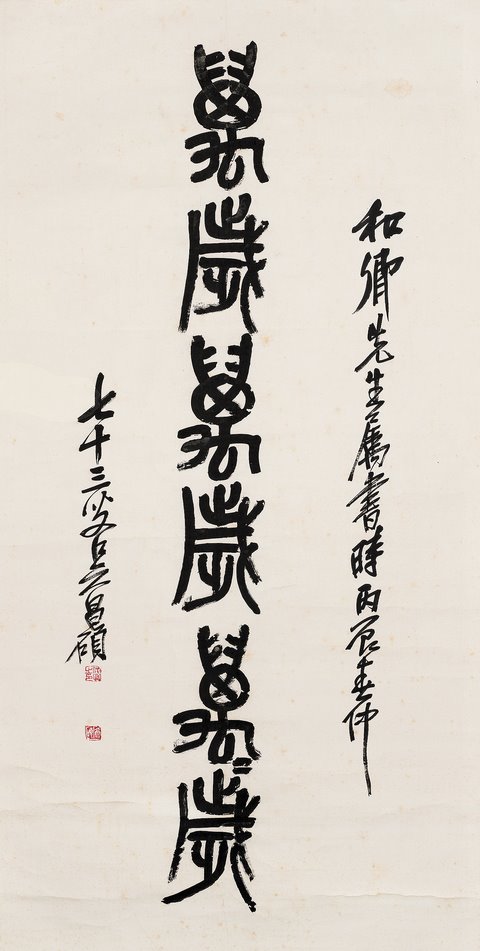 和卿先生屬書時丙辰春仲
萬歲萬歲萬歲
七十三叟吳昌碩